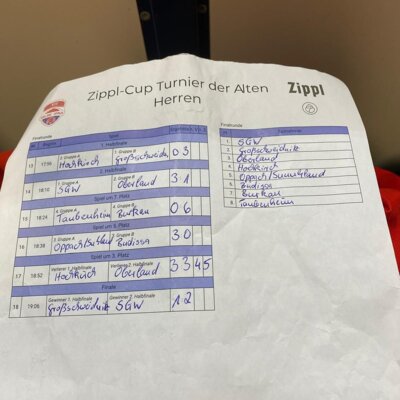 Zippl-Cup Turnier der Alten Herren
Zippl
Finalrunde
Nr. Beginn Spiel
1. Halbfinale
1. Gruppe A 2. Gruppe B
13 17:56 Hochkirch Großschweidnitz 0 3
2. Halbfinale
14 18:10 SGW Oberland 3 1
Spiel um 7. Platz
15 18:24 Taubenheim Burkau 0 6
Spiel um 5. Platz
3. Gruppe A 3. Gruppe B
16 18:38 Oppach Budissa 3 0
Spiel um 3. Platz
Verlierer 1. Halbfinale Verlierer 2. Halbfinale
17 18:52 Hochkirch Oberland 3 3 4 5
Finale
Gewinner 1. Halbfinale Gewinner 2. Halbfinale
18 19:06 Großschweidnitz SGW 1 2
Finalrunde
Teilnehmer
1 SGW
2 Großschweidnitz
3 Oberland
4 Hochkirch
5 Oppach
6 Budissa
Burkau
8 Taubenheim